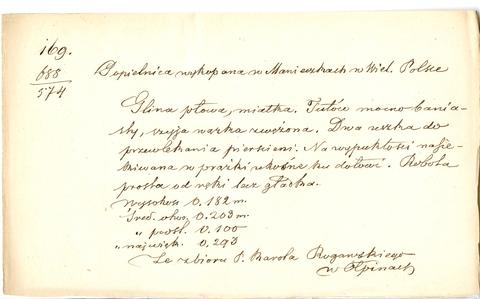 169.
688
574
Popielnica wykopana w Manieczkach w Wiel. Polsce
Glina płowa, miałka. Tułów mocno bania-
sty, szyja wązka zwężona. Dwa uszka do
przewlekania pierścieni. Na wypukłości nasie-
kiwana w prążki ukośne ku dołowi. Robota
prosta od ręki bez gładka.
Wysokość 0.182 m.
Śred. otwor. 0.203 m.
" podst. 0.100
" najwięk. 0.293
Ze zbioru P. Karola Rogawskiego
w Ołpinach